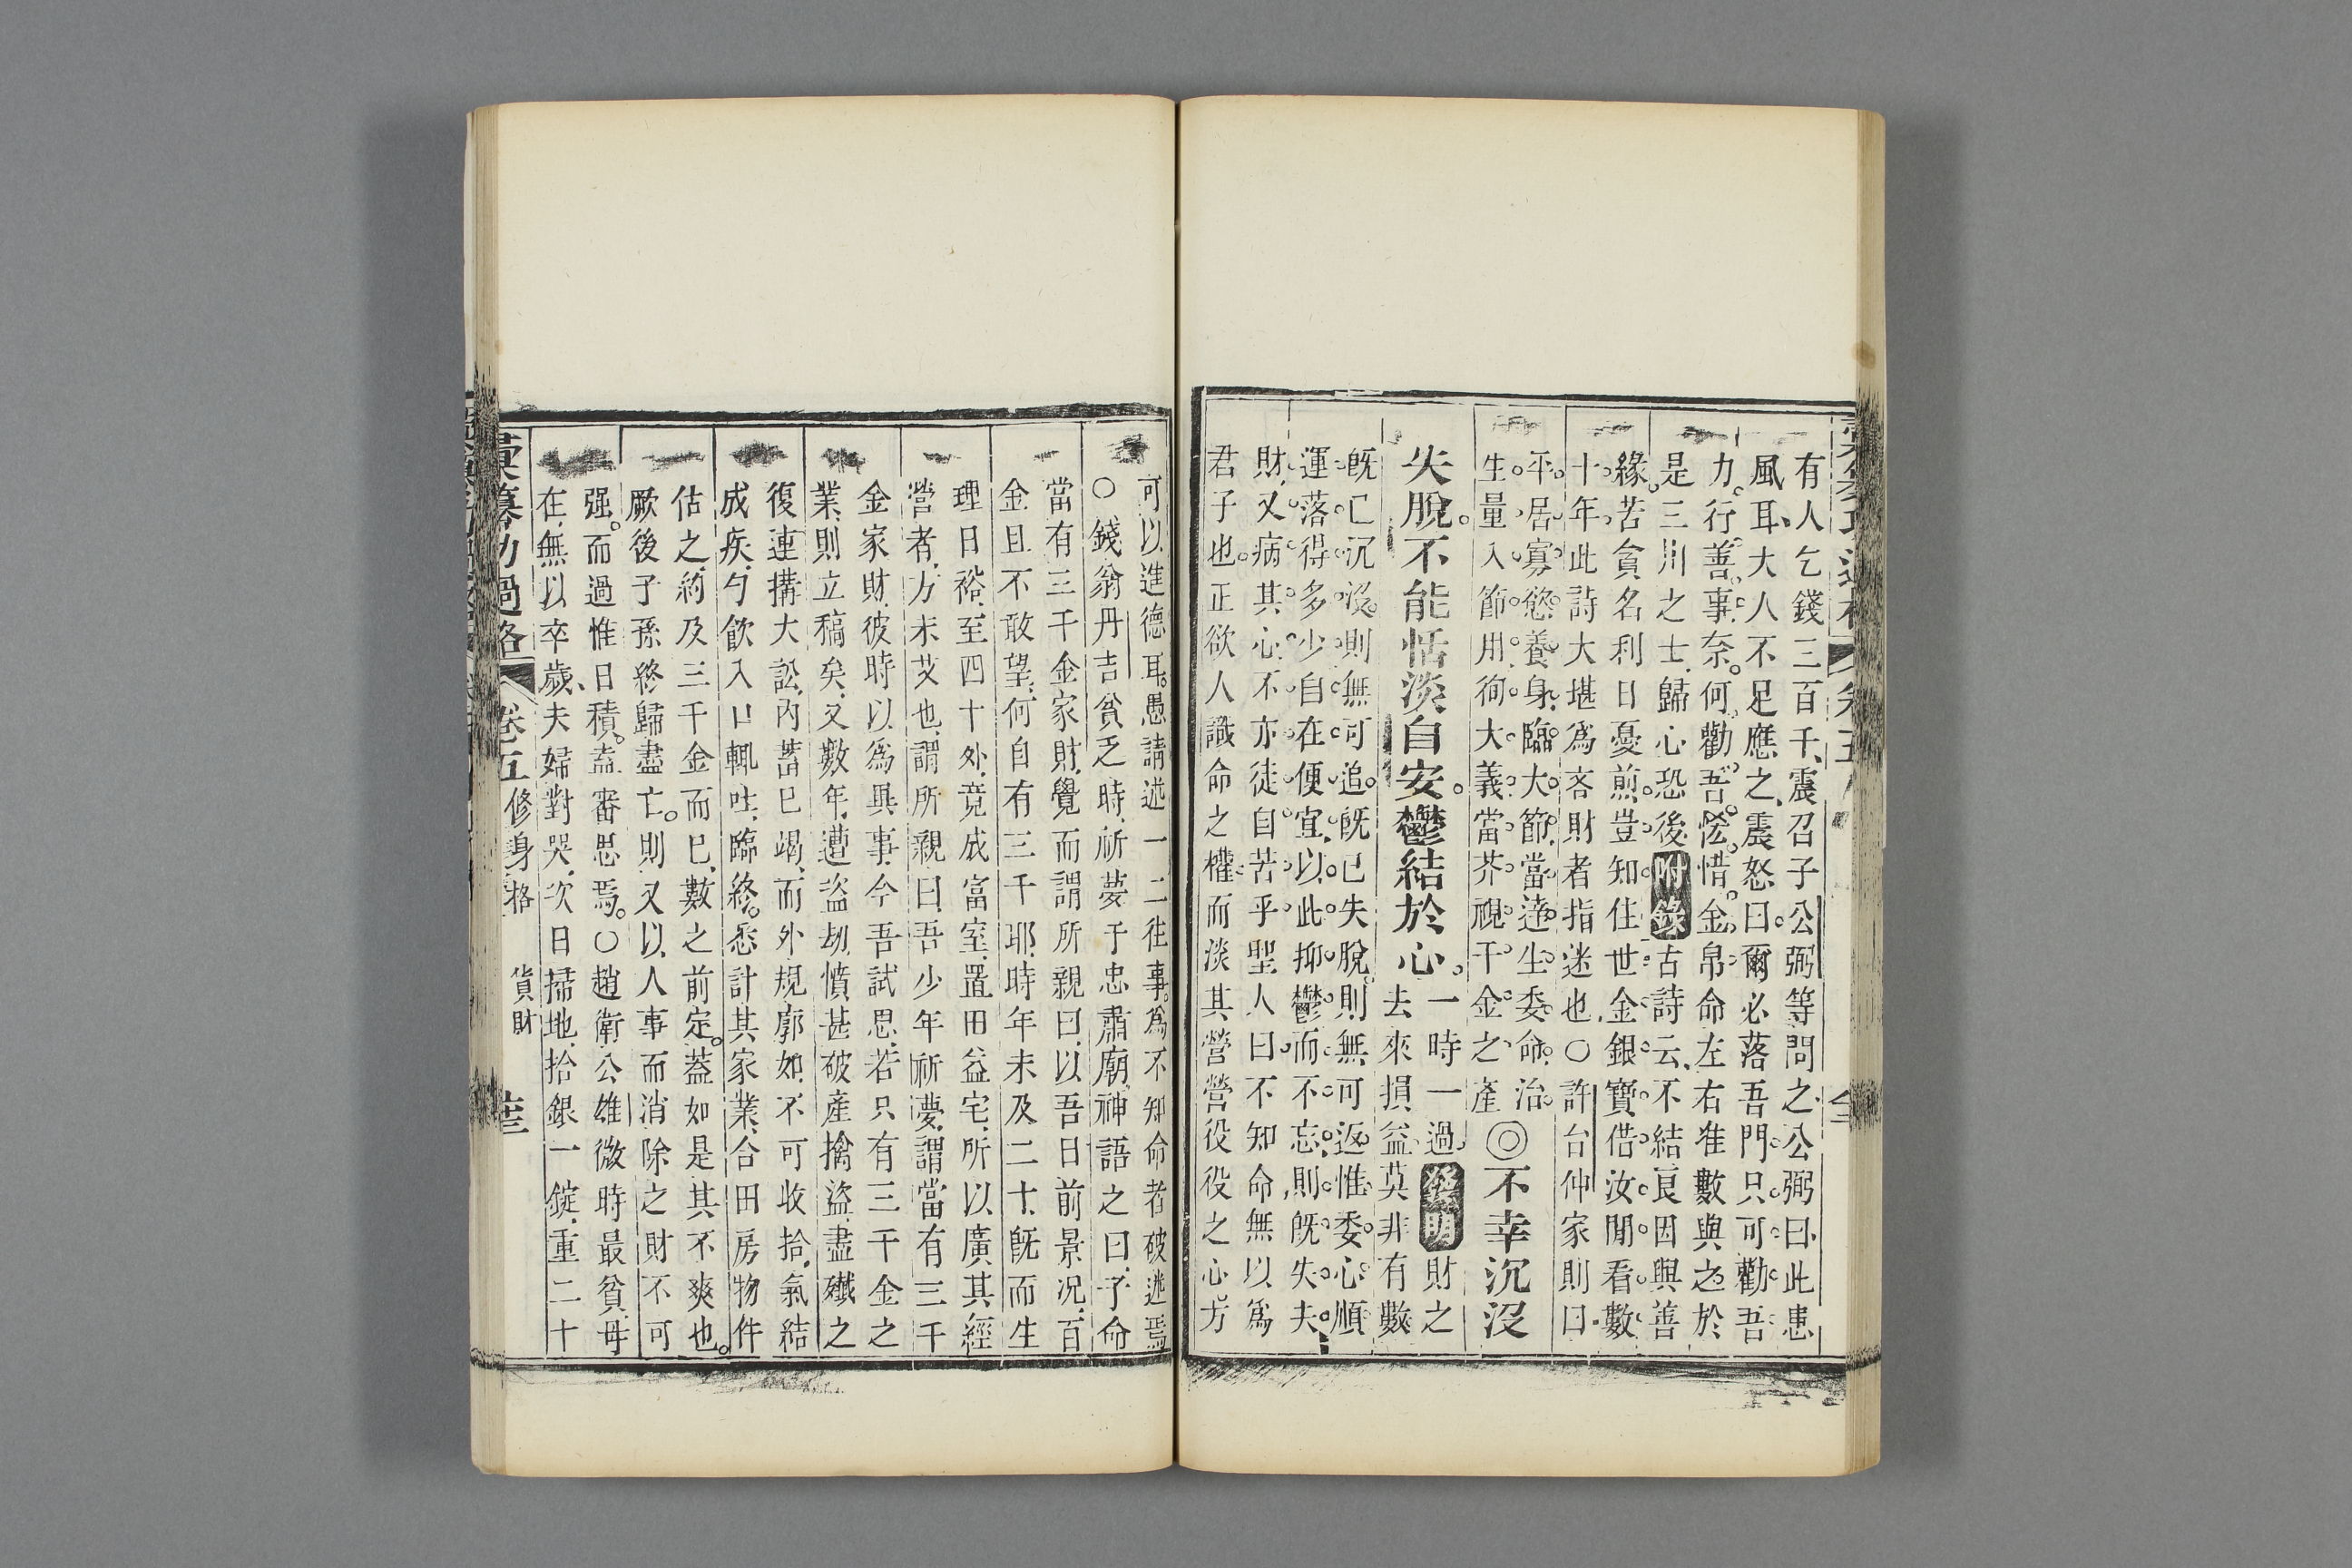 有人乞錢三百千震召子公弼等問之公弼曰此患
風耳大人不足應之震怒曰爾必落吾門只可勸吾
力行善事奈何勸吾恡惜金帛命左右准數與之於
是三川之士歸心恐後附錄古詩云不結良因與善
緣苦貪名利日憂煎豈知住世金銀寶借汝閒看數
十年此詩大堪為吝財者指迷也○許台仲家則曰
平居寡慾養身臨大節當達生委命治
生量入節用徇大義當芥視千金之產◎不幸沉沒
失脫不能恬淡自安鬱結於心一時一過發明財之
去來損益莫非有數
既亡沉沒則無可追既已失脫則無可返惟委心順
運落得多少自在便宜以此抑鬱而不忘則既失夫
財又病其心不亦徒自苦乎聖人曰不知命無以為
君子也正欲人識命之權而淡其營營役役之心方
可以進德耳愚請述一二往事為不知命者破迷焉
○錢翁丹吉貧乏時祈夢于忠肅廟神語之曰子命
當有三千金家財覺而謂所親曰以吾日前景況百
金且不敢望何自有三千耶時年未及二十既而生
理日裕至四十外竟成富室置田益宅所以廣其經
營者方未艾也謂所親曰吾少年祈夢謂當有三千
金家財彼時以為異事今吾試思若只有三千金之
業則立稿矣又數年遭盜刼憤甚破產擒盜盡殲之
復連搆大訟內蓄已竭而外規廓如不可收拾氣結
成疾勺飲入口輒吐臨終悉計其家業合田房物件
估之約及三千金而已數之前定蓋如是其不爽也
厥後子孫終歸盡亡則又以人事而消除之財不可
强而過惟日積盍審思焉○趙衛公雄微時最貧毋
在無以卒歲夫婦對哭次日掃地拾銀一錠重二十
彙纂功過格 卷五 修身格 貨財